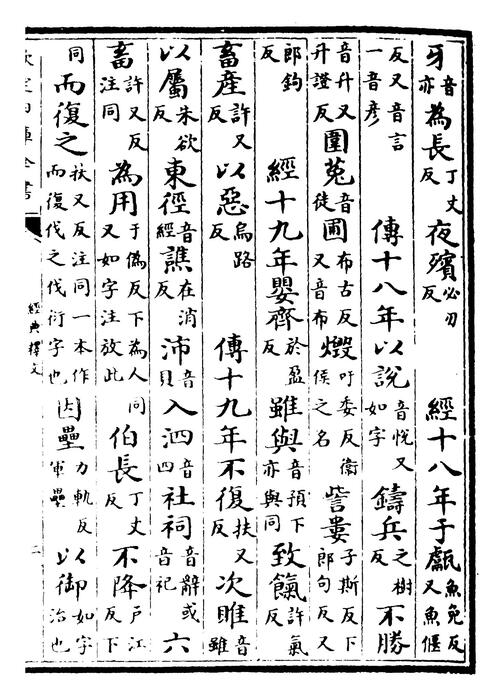 牙音亦為長丁丈反夜殯必刃反　經十八年于甗魚免反又魚偃
反又音言一音彦　傳十八年以說音悅又如字鑄兵之樹反不勝
音升又升證反圍菟音徒圃布古反又音布燬吁委反衛侯之名訾婁子斯反下郎句反又
郎鉤反　經十九年嬰齊於盈反雖與音預下亦與同致餼許氣反
畜產許又反以惡烏路反　傳十九年不復扶又反次睢音雖
以屬朱欲反東徑音經譙在消反沛音貝入泗音四社祠音辭或音祀六
畜許又反注同為用于偽反下為人同又如字注放此伯長丁丈反不降戶江反下
同而復之扶又反注同一本作而復伐之伐衍字也因壘力軌反軍壘以御如字治也
經典釋文
二